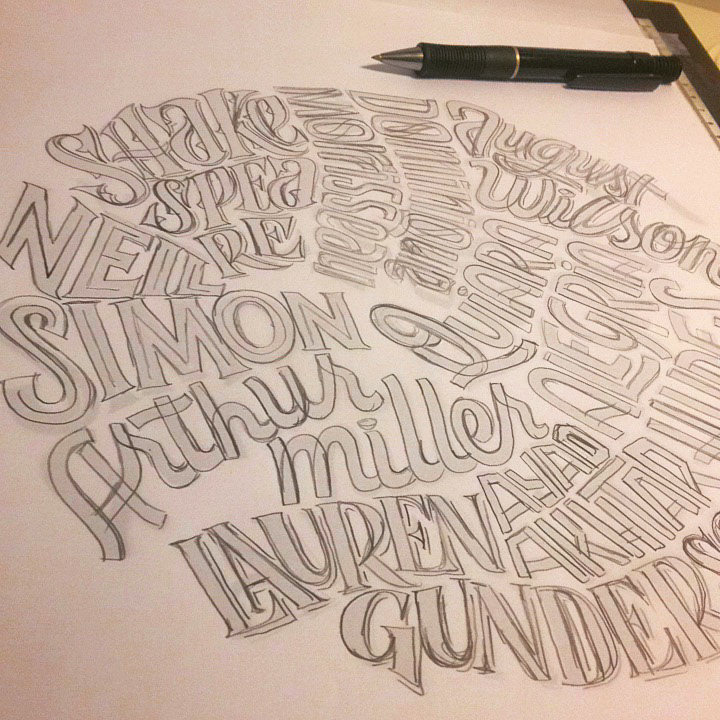 SHAKE
SPEA
RE
DOMINIQUE
MORISSEAU
August
Wilson
NEIL
SIMON
QUIARA
ALEGRIA
HUDES
Arthur
miller
AYAD
AKHTAR
LAUREN
GUNDERS